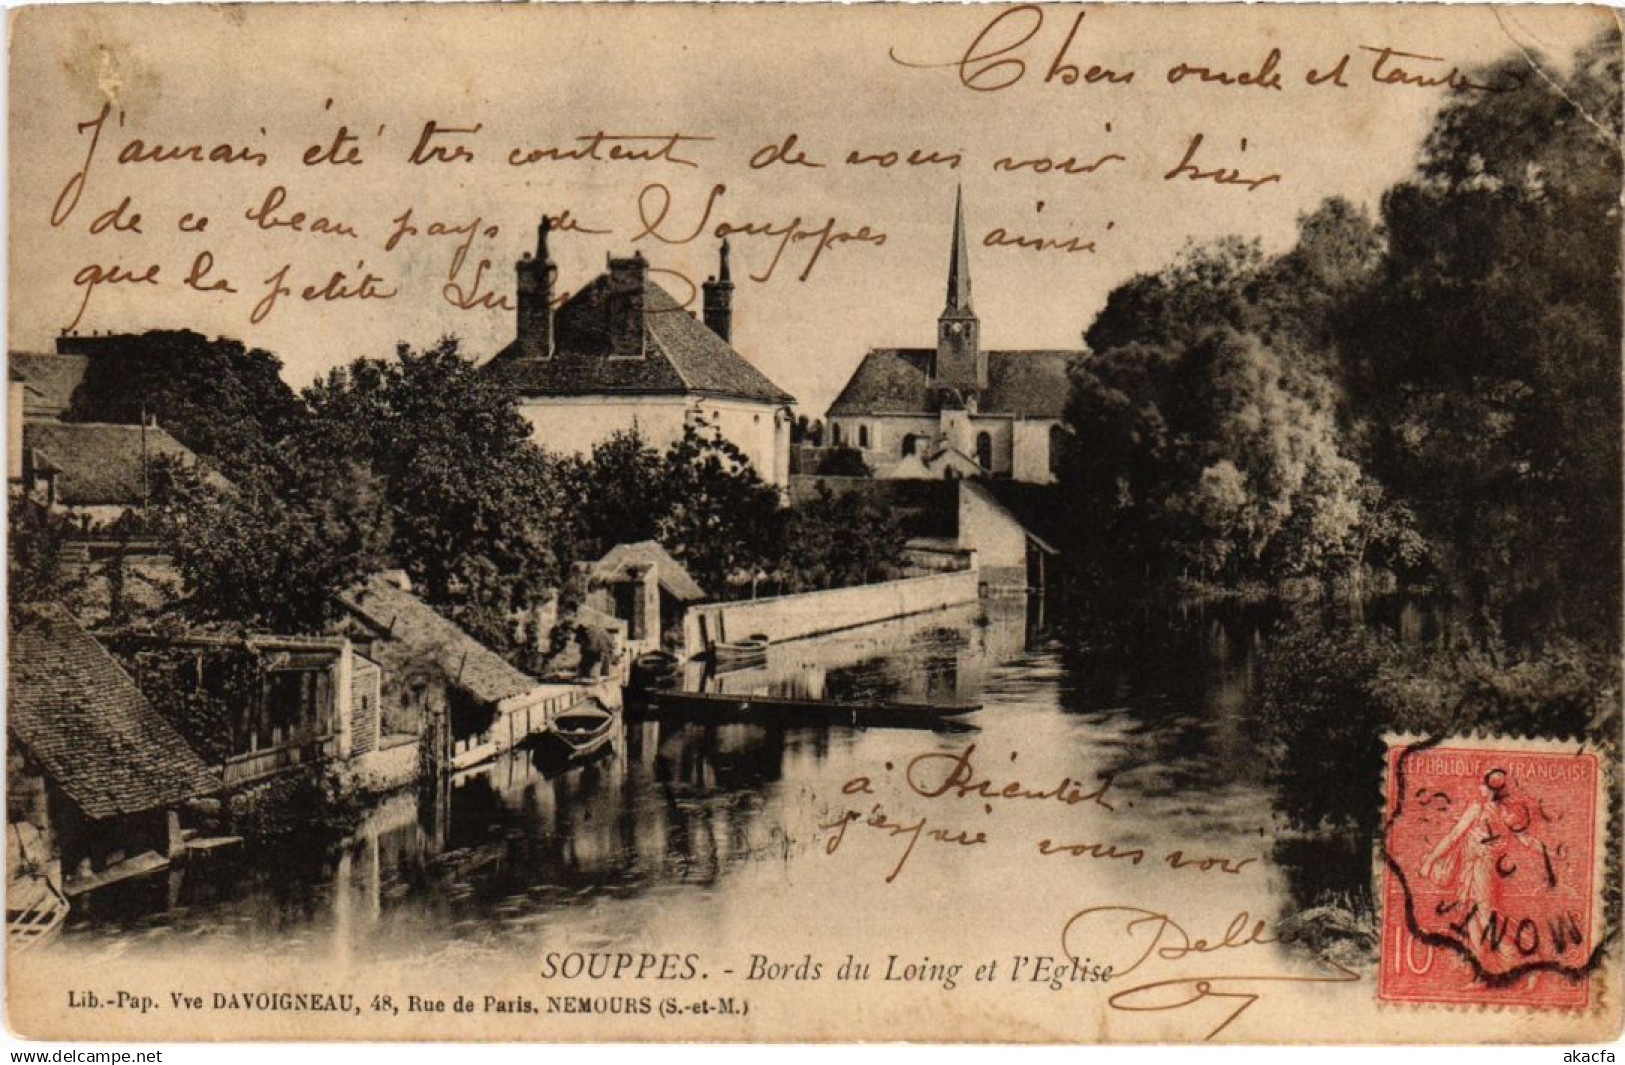 Chers oncle et tante
J'aurais été très content de vous voir hier
de ce beau pays de Souppes ainsi
que la petite
à Bientôt.
j'espère vous voir
SOUPPES. - Bords du Loing et l'Eglise
Lib.-Pap. Vve DAVOIGNEAU, 48, Rue de Paris, NEMOURS (S.-et-M.)
RÉPUBLIQUE FRANÇAISE
10
MONT
akacfa
www.delcampe.net